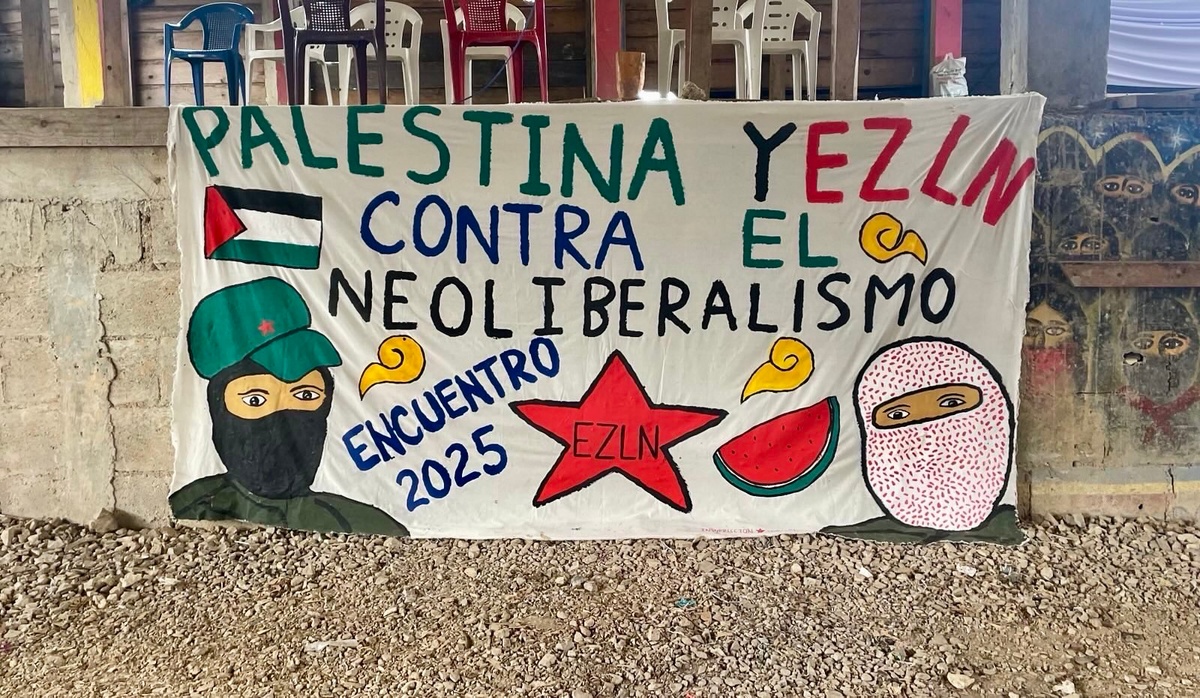 PALESTINA Y EZLN
CONTRA EL
NEOLIBERALISMO
ENCUENTRO
2025
EZLN